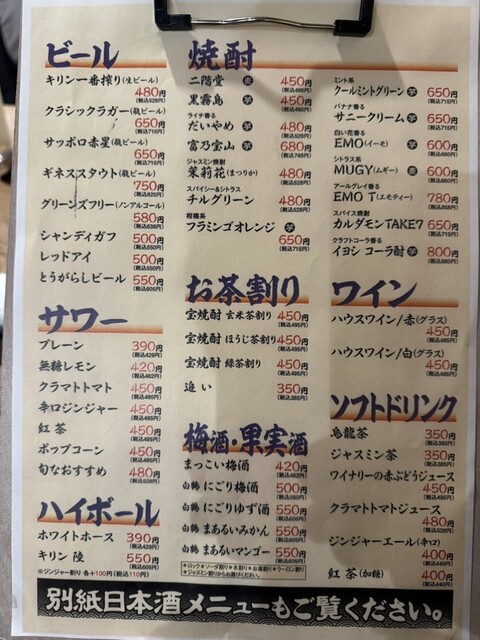 ビール
キリン一番搾り(生ビール)
480円
(税込528円)
クラシックラガー(瓶ビール)
650円
(税込715円)
サッポロ赤星(瓶ビール)
650円
(税込715円)
ギネススタウト(瓶ビール)
750円
(税込825円)
グリーンズフリー(ノンアルコール)
580円
(税込638円)
シャンディガフ 500円
(税込550円)
レッドアイ 500円
(税込550円)
とうがらしビール 550円
(税込605円)
サワー
プレーン 390円
(税込429円)
無糖レモン 420円
(税込462円)
クラマトトマト 450円
(税込495円)
辛口ジンジャー 450円
(税込495円)
紅茶 450円
(税込495円)
ポップコーン 450円
(税込495円)
旬なおすすめ 480円
(税込528円)
ハイボール
ホワイトホース 390円
(税込429円)
キリン 陸 500円
(税込550円)
※ジンジャー割り 各+100円(税込110円)
焼酎
二階堂 麦 450円
(税込495円)
黒霧島 芋 450円
(税込495円)
ライチ香る
だいやめ 芋 480円
(税込528円)
富乃宝山 芋 680円
(税込748円)
ジャスミン焼酎
茉莉花(まつりか) 480円
(税込528円)
スパイシー&シトラス
チルグリーン 480円
(税込528円)
柑橘系
フラミンゴオレンジ 芋
650円
(税込715円)
お茶割り
宝焼酎 玄米茶割り 450円
(税込495円)
宝焼酎 ほうじ茶割り 450円
(税込495円)
宝焼酎 緑茶割り 450円
(税込495円)
追い 350円
(税込385円)
梅酒・果実酒
まっこい梅酒 420円
(税込462円)
白鶴 にごり梅酒 500円
(税込550円)
白鶴 にごりゆず酒 550円
(税込605円)
白鶴 まあるいみかん 550円
(税込605円)
白鶴 まあるいマンゴー 550円
(税込605円)
※ロック※ソーダ割り※水割り※お湯割り※ウーロン割り
※ジャスミン割りからお選びください。
ミント系
クールミントグリーン 芋 650円
(税込715円)
バナナ香る
サニークリーム 芋 650円
(税込715円)
白い花香る
EMO(イーモ) 芋 600円
(税込660円)
シトラス系
MUGY(ムギー) 麦 600円
(税込660円)
アールグレイ香る
EMO T(エモティー) 780円
(税込858円)
スパイス焼酎
カルダモンTAKE7 650円
(税込715円)
クラフトコーラ香る
イヨシ コーラ酎 芋 800円
(税込880円)
ワイン
ハウスワイン/赤(グラス)
450円
(税込495円)
ハウスワイン/白(グラス)
450円
(税込495円)
ソフトドリンク
烏龍茶 350円
(税込385円)
ジャスミン茶 350円
(税込385円)
ワイナリーの赤ぶどうジュース
450円
(税込495円)
クラマトトマトジュース
480円
(税込528円)
ジンジャーエール(辛口)
400円
(税込440円)
紅茶(加糖) 400円
(税込440円)
別紙日本酒メニューもご覧ください。